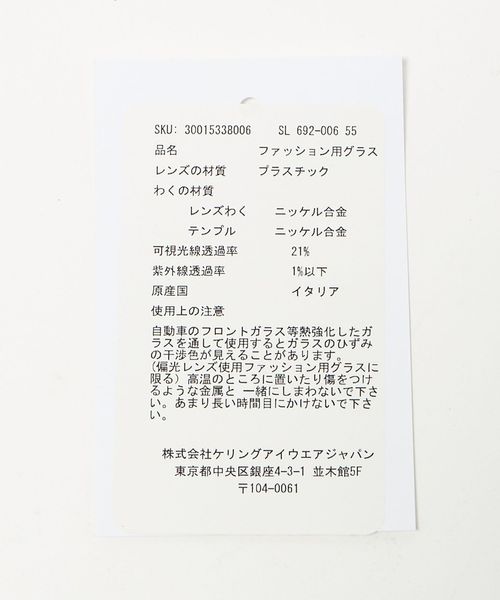 SKU: 30015338006 SL 692-006 55
品名 ファッション用グラス
レンズの材質 プラスチック
わくの材質
レンズわく ニッケル合金
テンプル ニッケル合金
可視光線透過率 21%
紫外線透過率 1%以下
原産国 イタリア
使用上の注意
自動車のフロントガラス等熱強化したガ
ラスを通して使用するとガラスのひずみ
の干渉色が見えることがあります。
(偏光レンズ使用ファッション用グラスに
限る) 高温のところに置いたり傷をつけ
るような金属と 一緒にしまわないで下さ
い。あまり長い時間目にかけないで下さ
い。
株式会社ケリングアイウエアジャパン
東京都中央区銀座4-3-1 並木館5F
〒104-0061